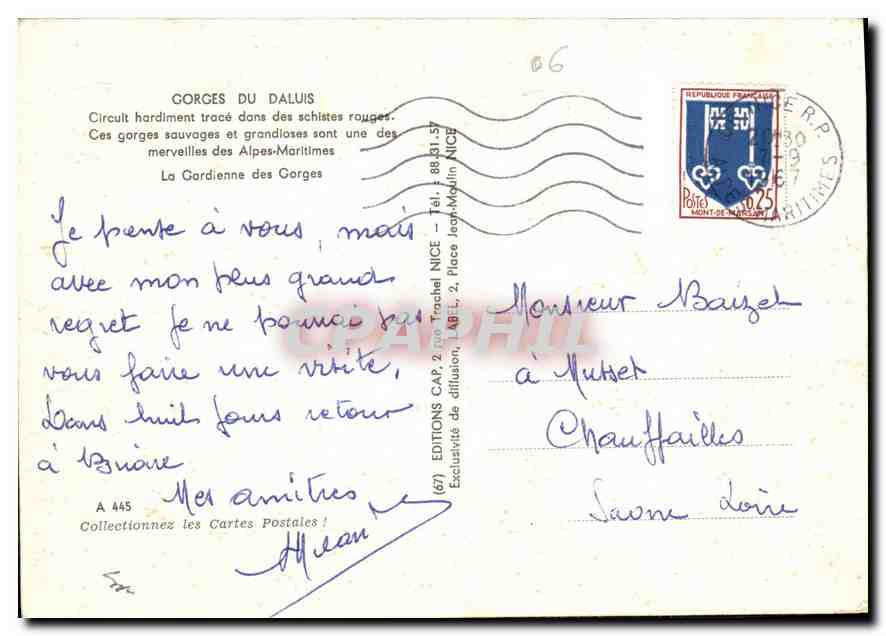 06
GORGES DU DALUIS
Circuit hardiment tracé dans des schistes rouges.
Ces gorges sauvages et grandioses sont une des
merveilles des Alpes-Maritimes
La Gardienne des Gorges
Je pense à vous, mais
avec mon plus grand
regret je ne pourrai pas
vous faire une visite,
Dans huit jours retour
à Briare
Mes amitiés
A 445
Collectionnez les Cartes Postales !
(67) EDITIONS CAP, 2 rue Trachel NICE – Tél. : 88.31.57
Exclusivité de diffusion, LABEL, 2, Place Jean-Moulin NICE
CPAPHIL
REPUBLIQUE FRANÇAISE
POSTES 0,25
MONT-DE-MARSAN
NICE R.P.
20H30
7-9
67
MARITIMES
Monsieur Baizet
à Mussset
Chauffailles
Saone Loire